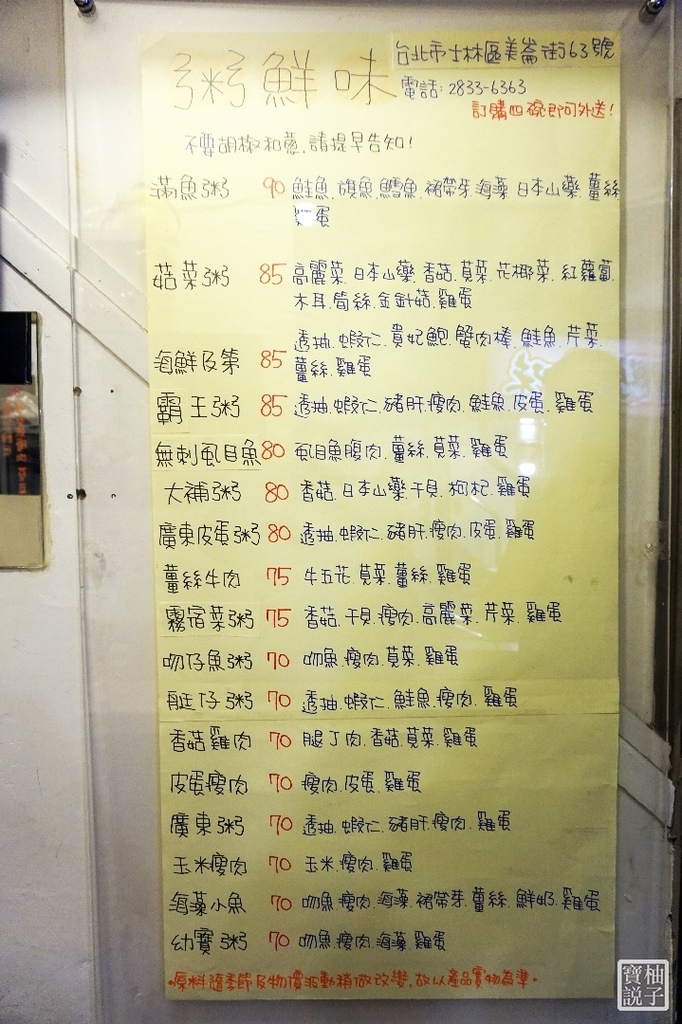 粥鮮味
台北市士林區美崙街63號
電話:2833-6363
訂購四碗即可外送!
不要胡椒和蔥,請提早告知!
滿魚粥 90 鮭魚.魩魚.鱈魚.裙帶芽.海藻.日本山藥.薑絲
雞蛋
菇菜粥 85 高麗菜.日本山藥.香菇.莧菜.花椰菜.紅蘿蔔.
木耳.筍絲.金針菇.雞蛋
透抽.蝦仁.貴妃鮑.蟹肉棒.鮭魚.芹菜.
海鮮及第 85 薑絲.雞蛋
霸王粥 85 透抽.蝦仁.豬肝.瘦肉.鮭魚.皮蛋.雞蛋
無刺虱目魚 80 虱目魚腹肉.薑絲.莧菜.雞蛋
大補粥 80 香菇.日本山藥.干貝.枸杞.雞蛋
廣東皮蛋粥 80 透抽.蝦仁.豬肝.瘦肉.皮蛋.雞蛋
薑絲牛肉 75 牛五花.莧菜.薑絲.雞蛋
霧宿菜粥 75 香菇.干貝.瘦肉.高麗菜.芹菜.雞蛋
吻仔魚粥 70 吻魚.瘦肉.莧菜.雞蛋
艇仔粥 70 透抽.蝦仁.鮭魚.瘦肉.雞蛋
香菇雞肉 70 腿丁肉.香菇.莧菜.雞蛋
皮蛋瘦肉 70 瘦肉.皮蛋.雞蛋
廣東粥 70 透抽.蝦仁.豬肝.瘦肉.雞蛋
玉米瘦肉 70 玉米.瘦肉.雞蛋
海藻小魚 70 吻魚.瘦肉.海藻.裙帶芽.薑絲.鮮奶.雞蛋
幼寶粥 70 吻魚.瘦肉.海藻.雞蛋
•原料隨季節及物價波動稍做改變,故以產品實物為準•
寶柚
說子